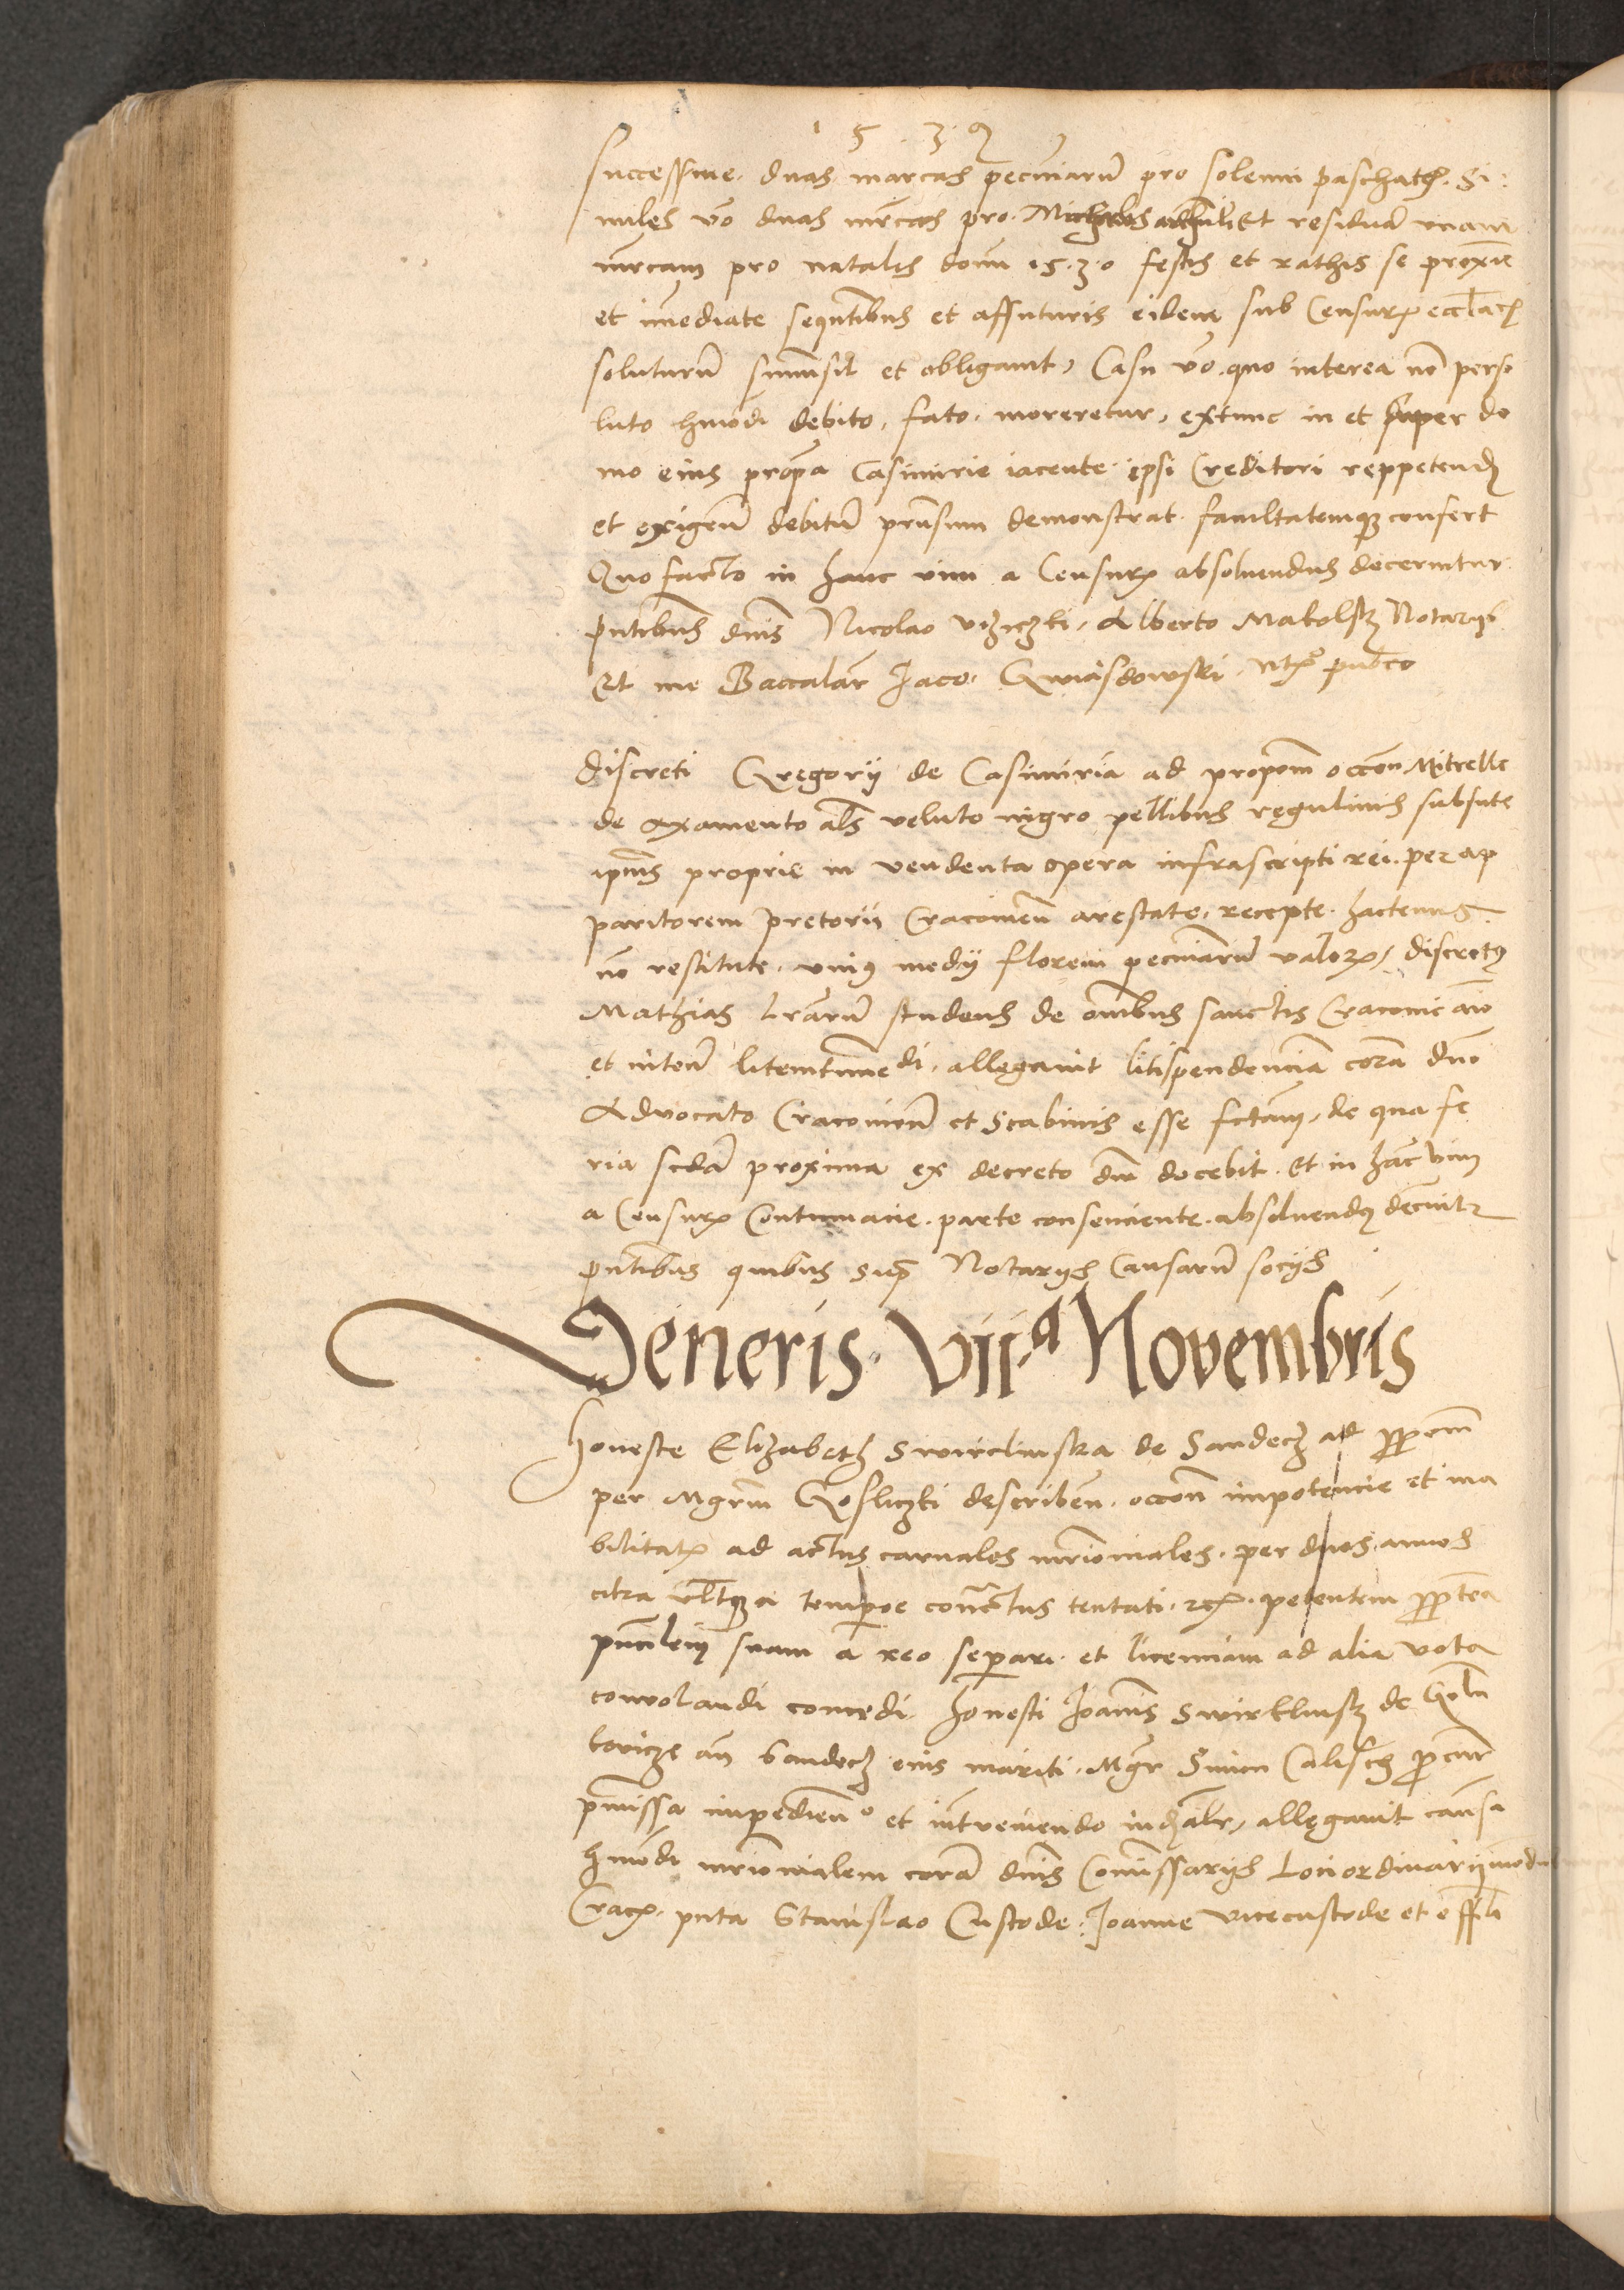 1 5 . 3 . 9
Successive. duas marcas pecuniarũ pro solenni paschatis. Si:
miles vo duas mrcas pro. Michaelis Et residuã unam
mrcam pro natalis domi 15.3.0 festis et rathis se proxie
et imediate sequntibus et affuturis eidem sub Censuris
soluturũ summsit et obligavit, Casu vo. quo interea no perso
luto hmodi debito, fato. moreretur, extunc in et super do
mo eius propa Casimirie iacente ipsi Creditori reppetend
et exigeñ debitũ demonstrat facultatemq confert
Quo facto in hanc vim a Censuris absolvendus decernitur
pntibus dnis Nicolao Alberto Makolsky Notariis
Et me Baccalar Jaco. Gwiasdowski ntrio publico
Discreti Gregorii de Casimiria ad proponem occone Mitrelle
de axamento als veluto nigro pellibus regulinis subsute
ipsius proprie in vendenta opera infrascripti rei. per ap
paritorem pretorii Cracovien arestate. recepte. hactenus
no restitute. unius medii floreni pecuniarũ valoris, discretus
Mathias lrarũ studens de omibus sanctis Cracovie
et allegavit litispendencia corã dno
Advocato Cracovien et Scabinis esse fctam, de qua fe
ria scda proxima ex decreto dni docebit. Et in hac vim
a Censuris Contumacie. parte consenciente. absolvendus decnitr
pntibus quibus supra Notariis Causarũ sociis
Veneris. VII.a Novembris
Honeste Elizabeth Swirclinska de Sandecz ad propoem
per Mgrm Gosliczki describen. occone impotencie et ina
bilitatis ad actus carnales mrimoniales. per duos annos
citra ultq a tempore contctus tentati. petentem proptea
suam a reo separi. et licenciam ad alia vota
convolandi concedi. Honesti Joannis Swirklinsky de
an Sandecz eius mariti. Mgr Simon Calisch procur
pmissa impedien et intveniendo allegavit causa
hmodi mrimonialem corã dnis Comissariis Loci ordinarii
Crac. puta Stanislao Custode. Joanne vicecustode et offili